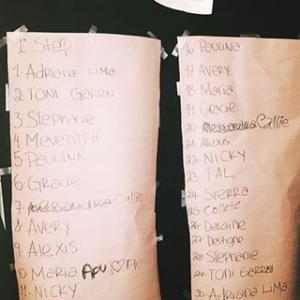 1° Step
1. Adriana Lima
2. TONI GARRN
3 Stephanie
4 MEVEDITH
5 PAULINA
6 Gracie
7 Alessandra Callie
8 AVERY
9 Alexis
10 MARIA
11 NICKY
16 PAULINA
17 AVERY
18 Maria
19 Gracie
20. Alessandra Callie
21 Alexis
22 NICKY
23 TAL
24. Sierra
25 Collete
26 Delaine
28 Stephanie
29 TONI GARRN
30 ADRIANA LIMA